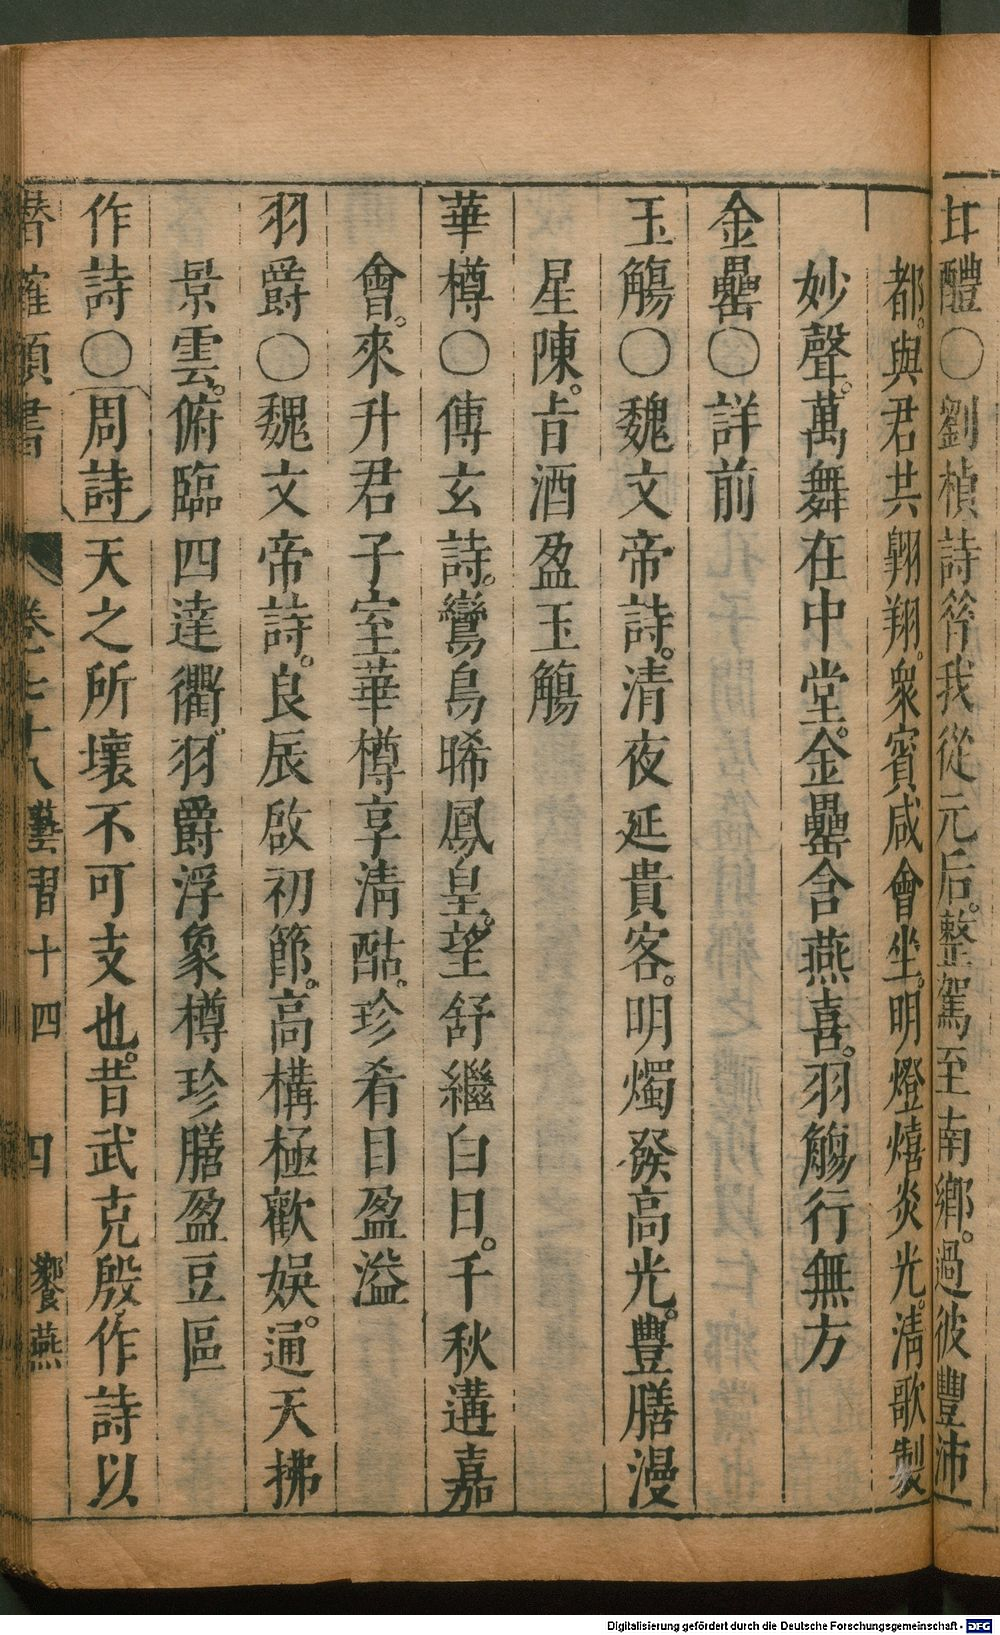 甘醴○劉楨詩答我從元后。整駕至南鄉。過彼豐沛
都。與君共翺翔。衆賓咸會坐。明燈熺炎光。清歌製
妙聲。萬舞在中堂。金罍含燕喜。羽觴行無方
金罍○詳前
玉觴○魏文帝詩。清夜延貴客。明燭發高光。豐膳漫
星陳。㫖酒盈玉觴
華樽○傅玄詩。鸞鳥晞鳳皇。望舒繼白日。千秋遘嘉
會。來升君子室。華樽享清酤。珍肴目盈溢
羽爵○魏文帝詩。良辰啟初節。高構極歡娛。通天拂
景雲。俯臨四達衢。羽爵浮象樽。珍膳盈豆區
作詩○周詩天之所壞不可支也。昔武克殷。作詩以
潛確類書 卷七十八 藝習十四 四 饗燕
Digitalisierung gefördert durch die Deutsche Forschungsgemeinschaft - DFG